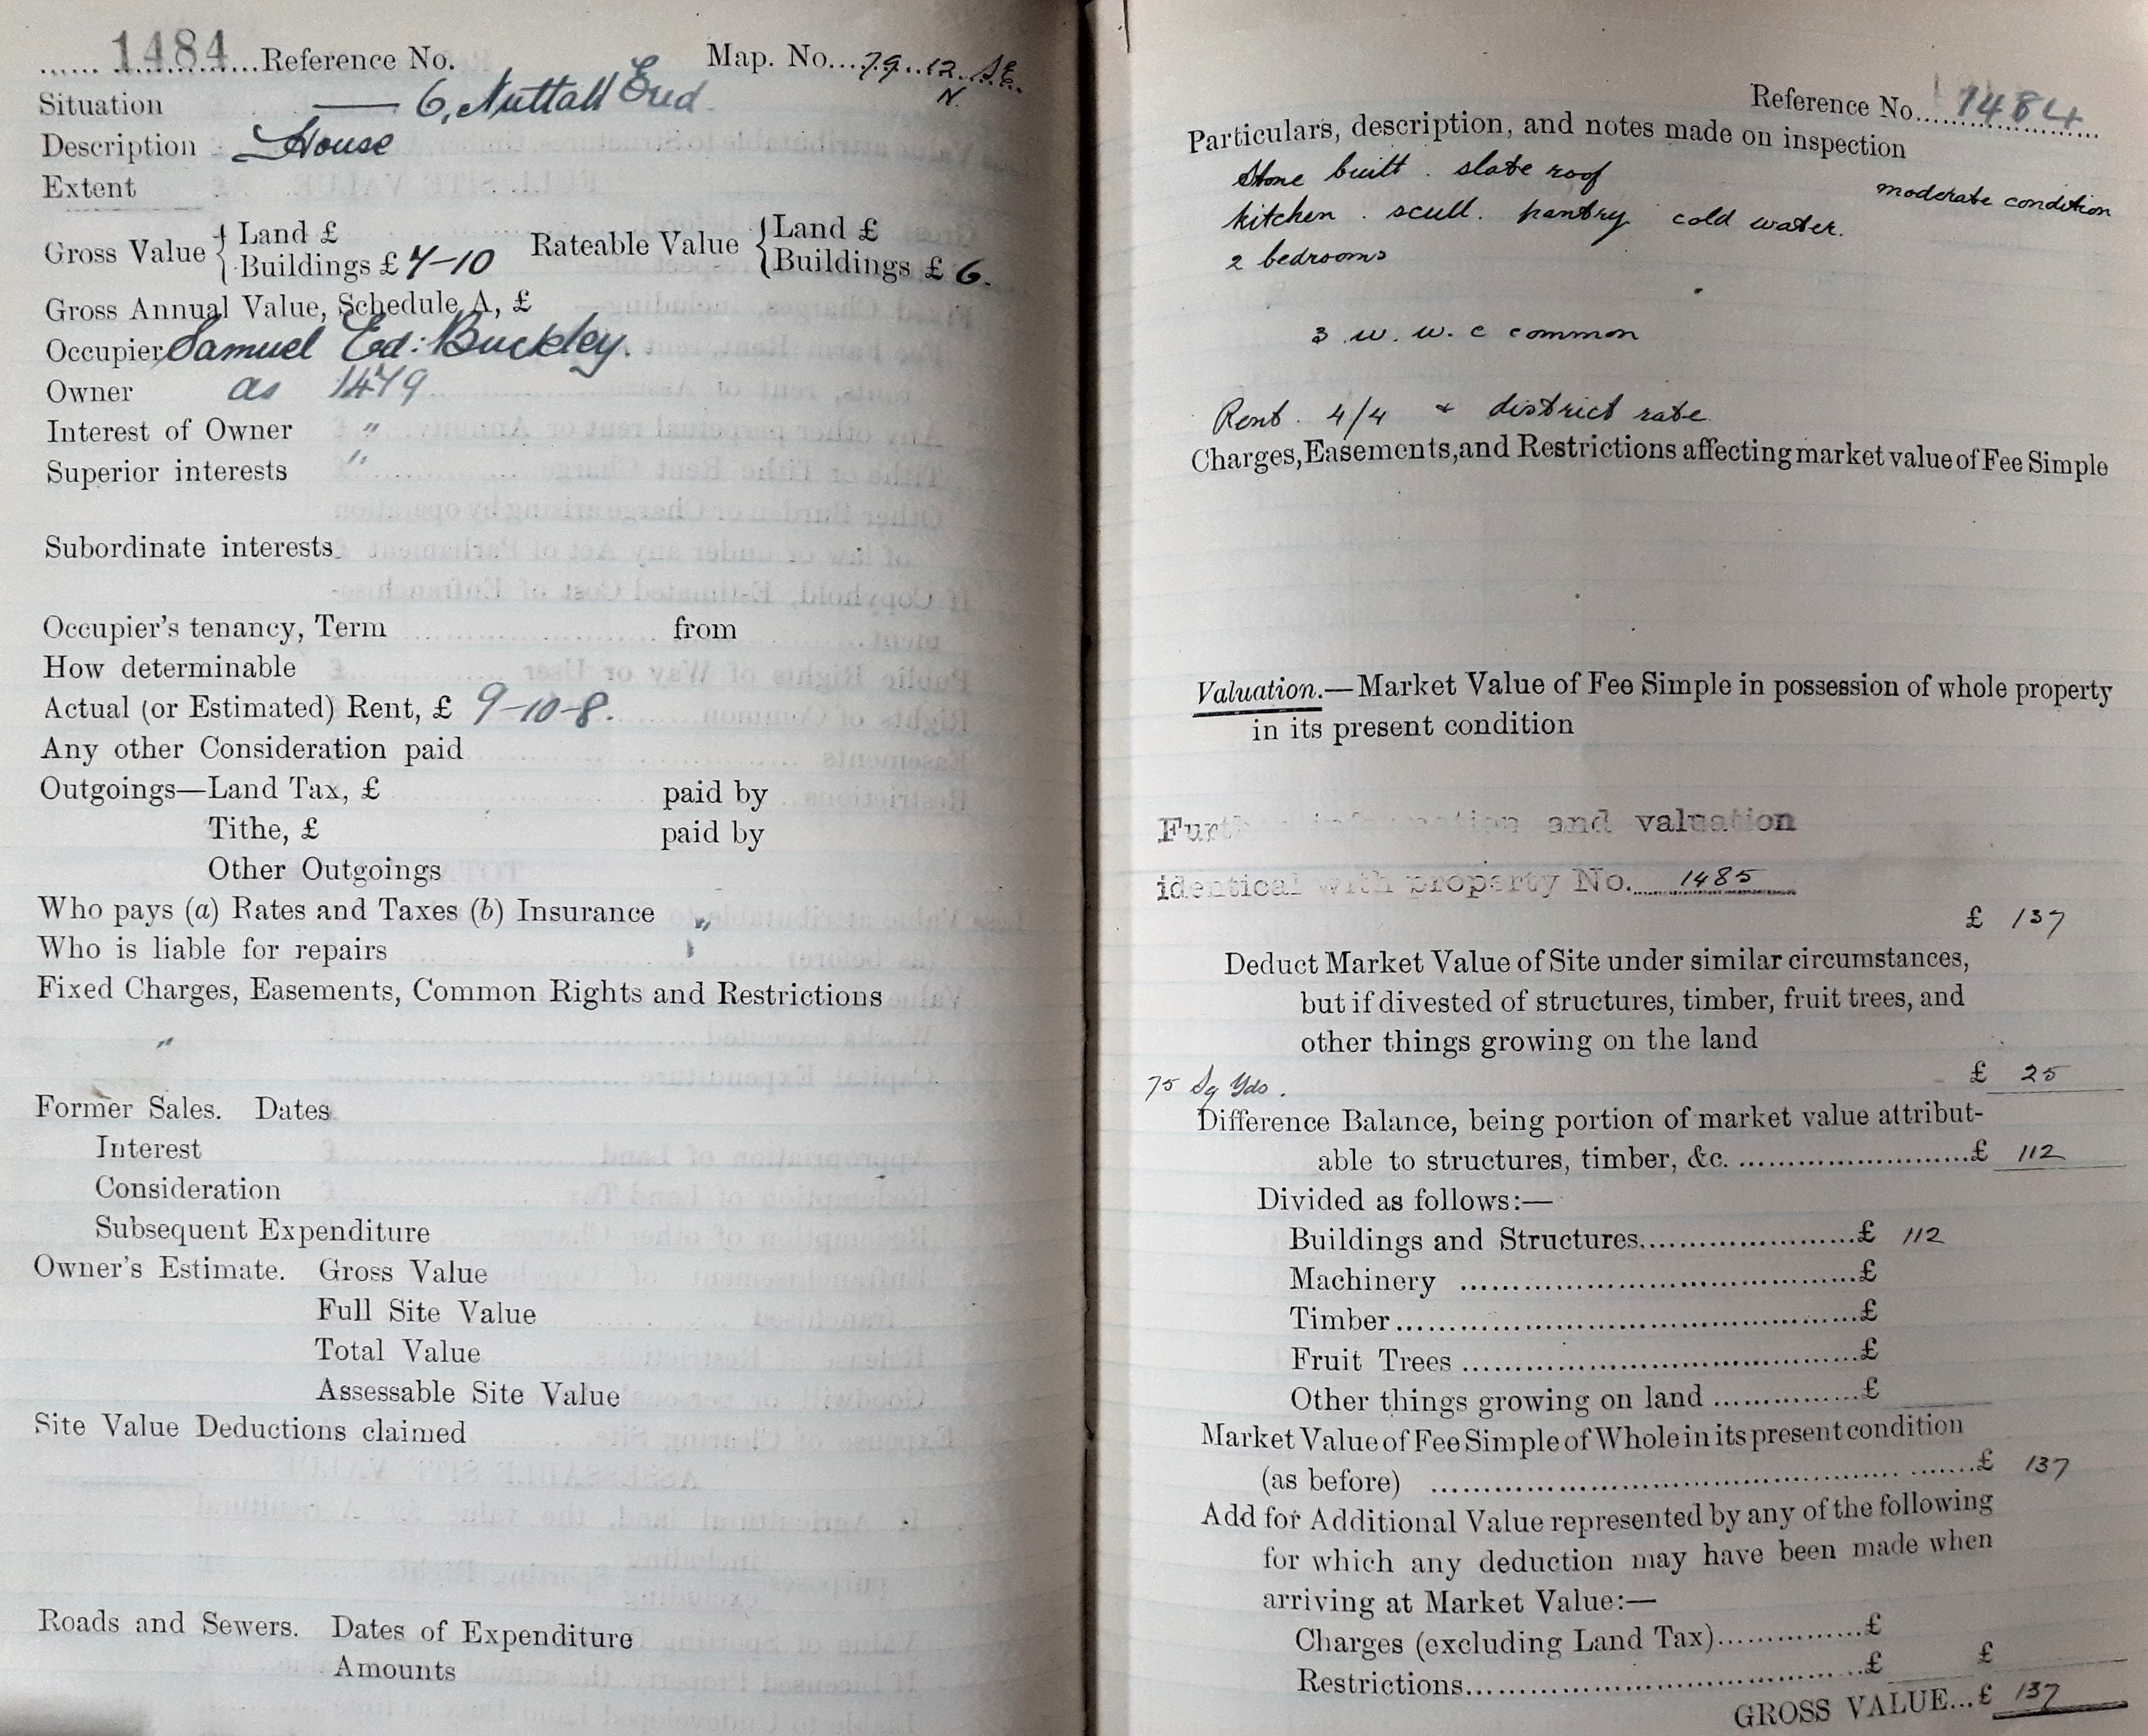 1484 Reference No. Map. No. 79.12. S.E.
N.
Situation — 6, Nuttall End.
Description House
Extent
Gross Value { Land £
Buildings £ 7-10
Rateable Value { Land £
Buildings £ 6.
Gross Annual Value, Schedule A, £
Occupier Samuel Ed: Buckley.
Owner as 1479
Interest of Owner "
Superior interests "
Subordinate interests
Occupier's tenancy, Term from
How determinable
Actual (or Estimated) Rent, £ 9-10-8.
Any other Consideration paid
Outgoings—Land Tax, £ paid by
Tithe, £ paid by
Other Outgoings
Who pays (a) Rates and Taxes (b) Insurance "
Who is liable for repairs "
Fixed Charges, Easements, Common Rights and Restrictions
"
Former Sales. Dates
Interest
Consideration
Subsequent Expenditure
Owner's Estimate. Gross Value
Full Site Value
Total Value
Assessable Site Value
Site Value Deductions claimed
Roads and Sewers. Dates of Expenditure
Amounts
Reference No. 1484
Particulars, description, and notes made on inspection
Stone built . slate roof moderate condition
kitchen . scull. pantry cold water.
2 bedrooms
3 w. w. c common
Rent . 4/4 + district rate
Charges, Easements, and Restrictions affecting market value of Fee Simple
Valuation.—Market Value of Fee Simple in possession of whole property
in its present condition
Further information and valuation
identical with property No. 1485
£ 137
Deduct Market Value of Site under similar circumstances,
but if divested of structures, timber, fruit trees, and
other things growing on the land
75 Sq Yds. £ 25
Difference Balance, being portion of market value attribut-
able to structures, timber, &c. £ 112
Divided as follows:—
Buildings and Structures £ 112
Machinery £
Timber £
Fruit Trees £
Other things growing on land £
Market Value of Fee Simple of Whole in its present condition
(as before) £ 137
Add for Additional Value represented by any of the following
for which any deduction may have been made when
arriving at Market Value:—
Charges (excluding Land Tax) £
Restrictions £ £
GROSS VALUE...£ 137